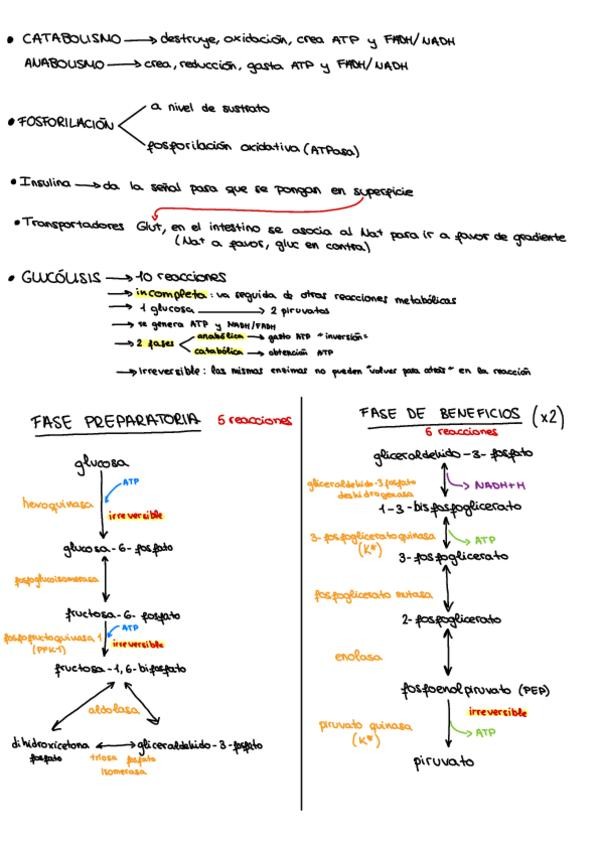 • CATABOLISMO → destruye, oxidación, crea ATP y FADH/NADH
ANABOLISMO → crea, reducción, gasta ATP y FADH/NADH
• FOSFORILACIÓN
a nivel de sustrato
fosforilación oxidativa (ATPasa)
• Insulina → da la señal para que se pongan en superficie
• Transportadores Glut, en el intestino se asocia al Na+ para ir a favor de gradiente
(Na+ a favor, gluc en contra)
• GLUCÓLISIS → 10 reacciones
→ incompleta: va seguida de otras reacciones metabólicas
→ 1 glucosa → 2 piruvatos
→ se genera ATP y NADH/FADH
→ 2 fases
anabólica → gasto ATP "inversión"
catabólica → obtención ATP
→ Irreversible: las mismas enzimas no pueden "volver para atrás" en la reacción
FASE PREPARATORIA 5 reacciones
glucosa
ATP
hexoquinasa
irreversible
glucosa-6-fosfato
fosfoglucoisomerasa
fructosa-6-fosfato
ATP
fosfofructoquinasa 1
(PFK1)
irreversible
fructosa-1,6-bifosfato
aldolasa
dihidroxicetona
fosfato
gliceraldehído-3-fosfato
triosa fosfato
isomerasa
FASE DE BENEFICIOS (x2)
6 reacciones
gliceraldehído-3-fosfato
gliceraldehído-3-fosfato
deshidrogenasa
NADH+H
1-3-bisfosfoglicerato
3-fosfoglicerato quinasa
(K*)
ATP
3-fosfoglicerato
fosfoglicerato mutasa
2-fosfoglicerato
enolasa
fosfoenolpiruvato (PEP)
irreversible
piruvato quinasa
(K*)
ATP
piruvato